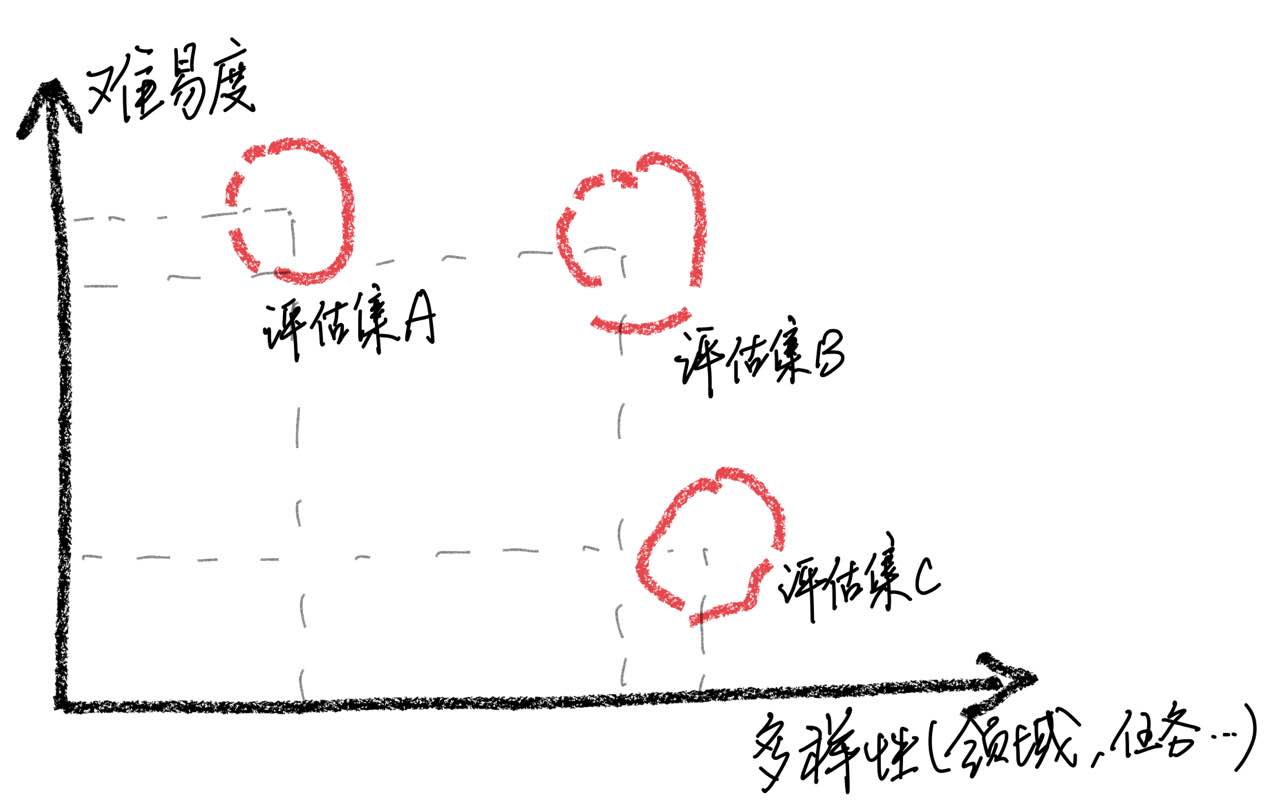 难易度
评估集A
评估集B
评估集C
多样性(领域,任务…)